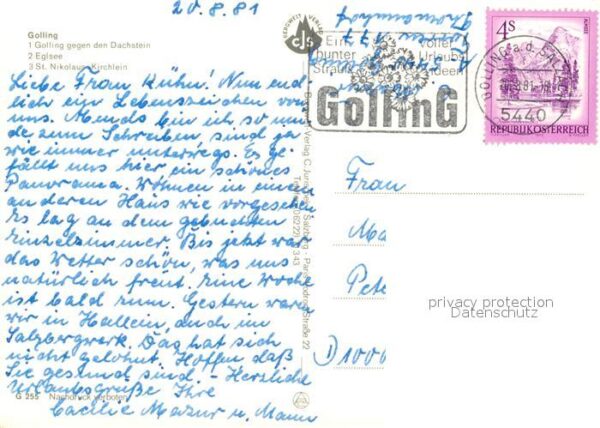 20.8.81
Golling
1 Golling gegen den Dachstein
2 Eglsee
3 St. Nikolaus-Kirchlein
Liebe Frau Kühn! Nun end-
lich ein Lebenszeichen von
uns. Abends bin ich so mü-
de zum Schreiben sind ja
wie immer unterwegs. Es ge-
fällt uns hier ein schönes
Panorama. Wohnen in einem
anderen Haus wie vorgesehen
Es lag an dem gebuchten
Einzelzimmer. Bis jetzt war
das Wetter schön, was uns
natürlich freut. Eine Woche
ist bald rum. Gestern waren
wir in Hallein, auch im
Salzbergwerk. Das hat sich
nicht gelohnt. Hoffen daß
Sie gesund sind - Herzliche
Urlaubsgrüße Ihre
Cäcilie Mazur u. Mann
G 255 Nachdruck verboten
BERGWELT VERLAG
cjs
Ein
bunter
Strauß
voller
Urlaubs
ideen
GollinG
4S
REPUBLIK ÖSTERREICH
5440
Frau
Ma
Pete
D 1000
privacy protection
Datenschutz